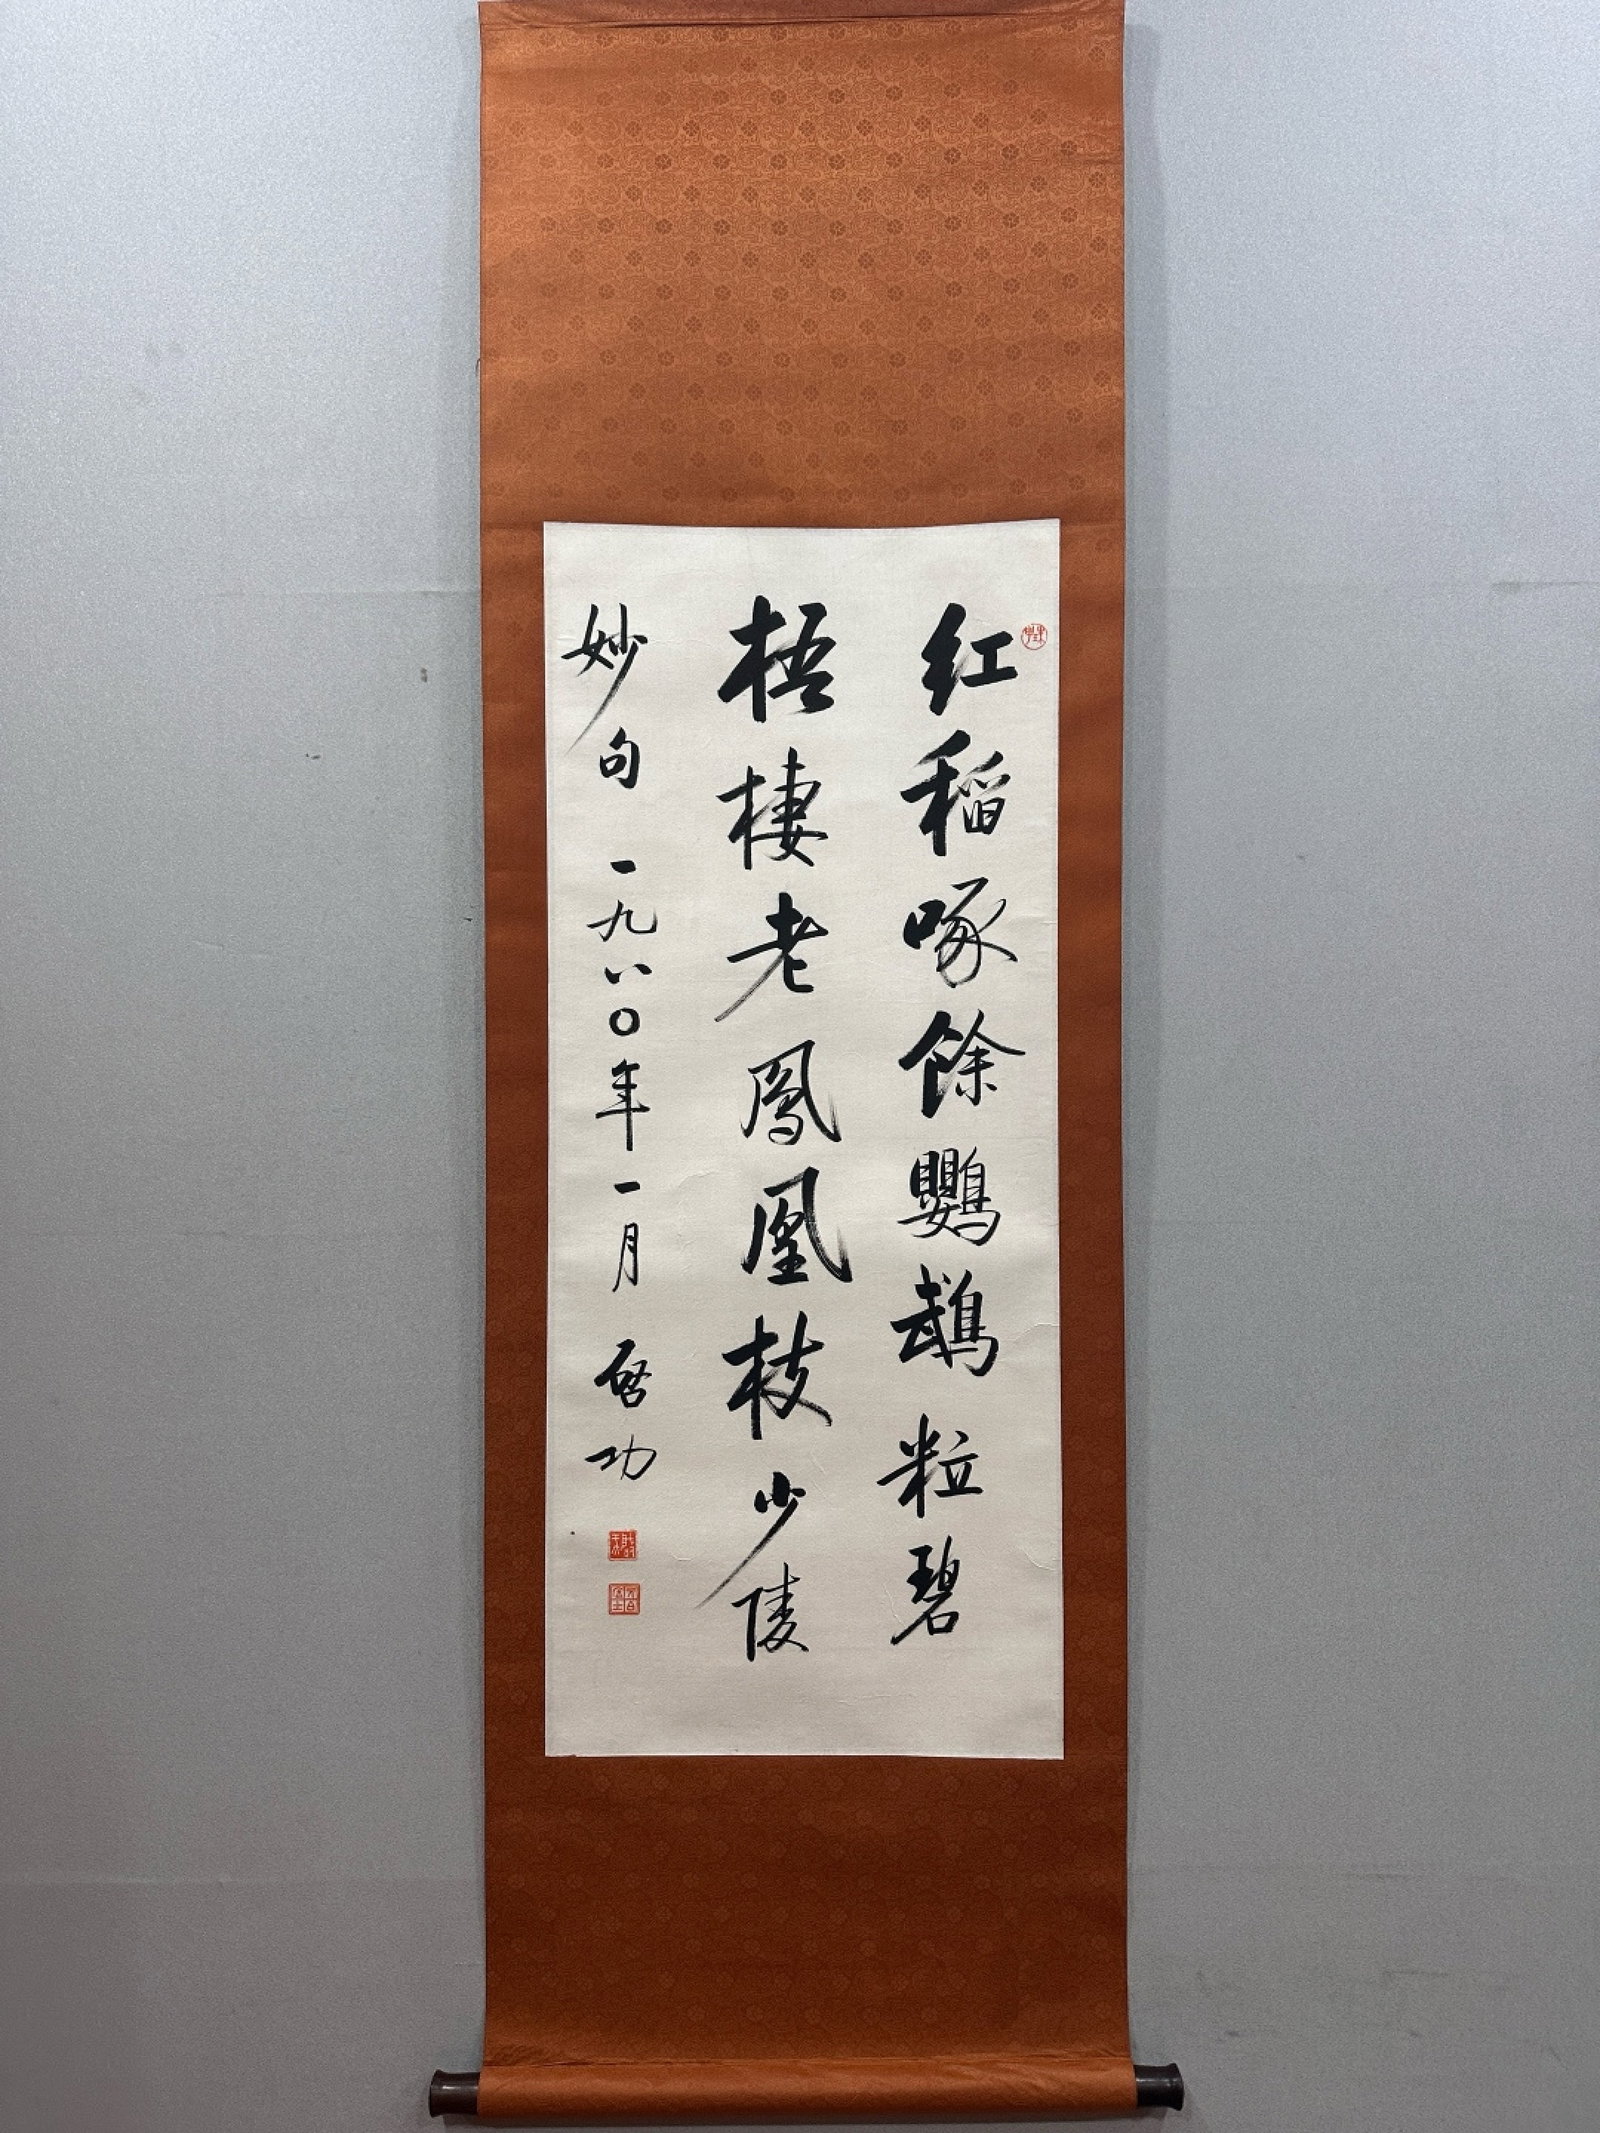 红稻啄餘鸚鵡粒碧
梧棲老鳳凰枝少陵
妙句 一九八〇年一月 啓功